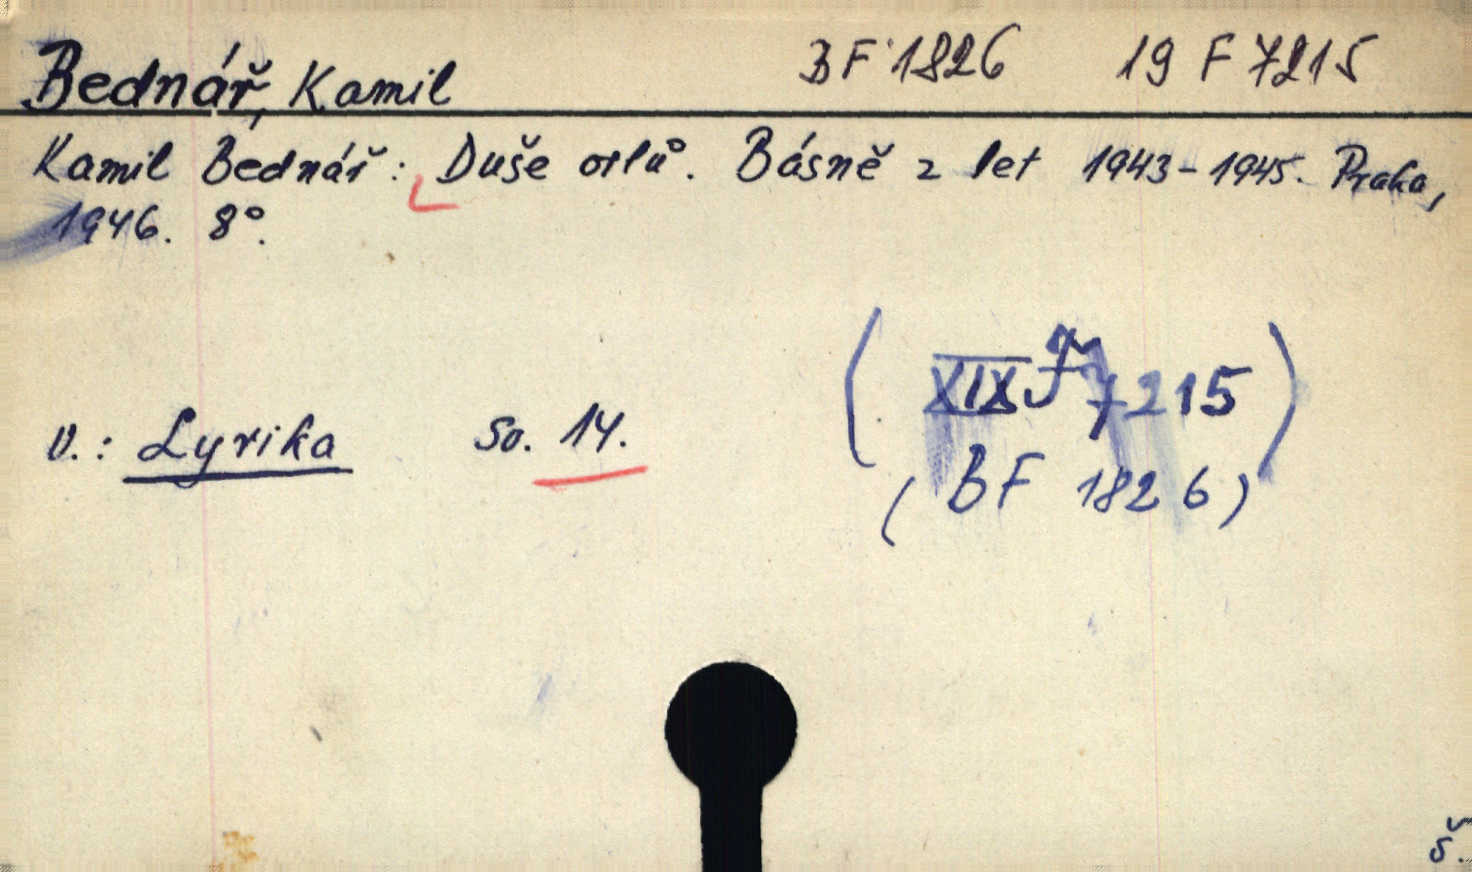 Bednář, Kamil BF 1826 19 F 7215
Kamil Bednář: Duše orlů. Básně z let 1943-1945. Praha,
1946. 8°.
(XIX F 7215)
v.: Lyrika So. 14.
(BF 1826)
š.